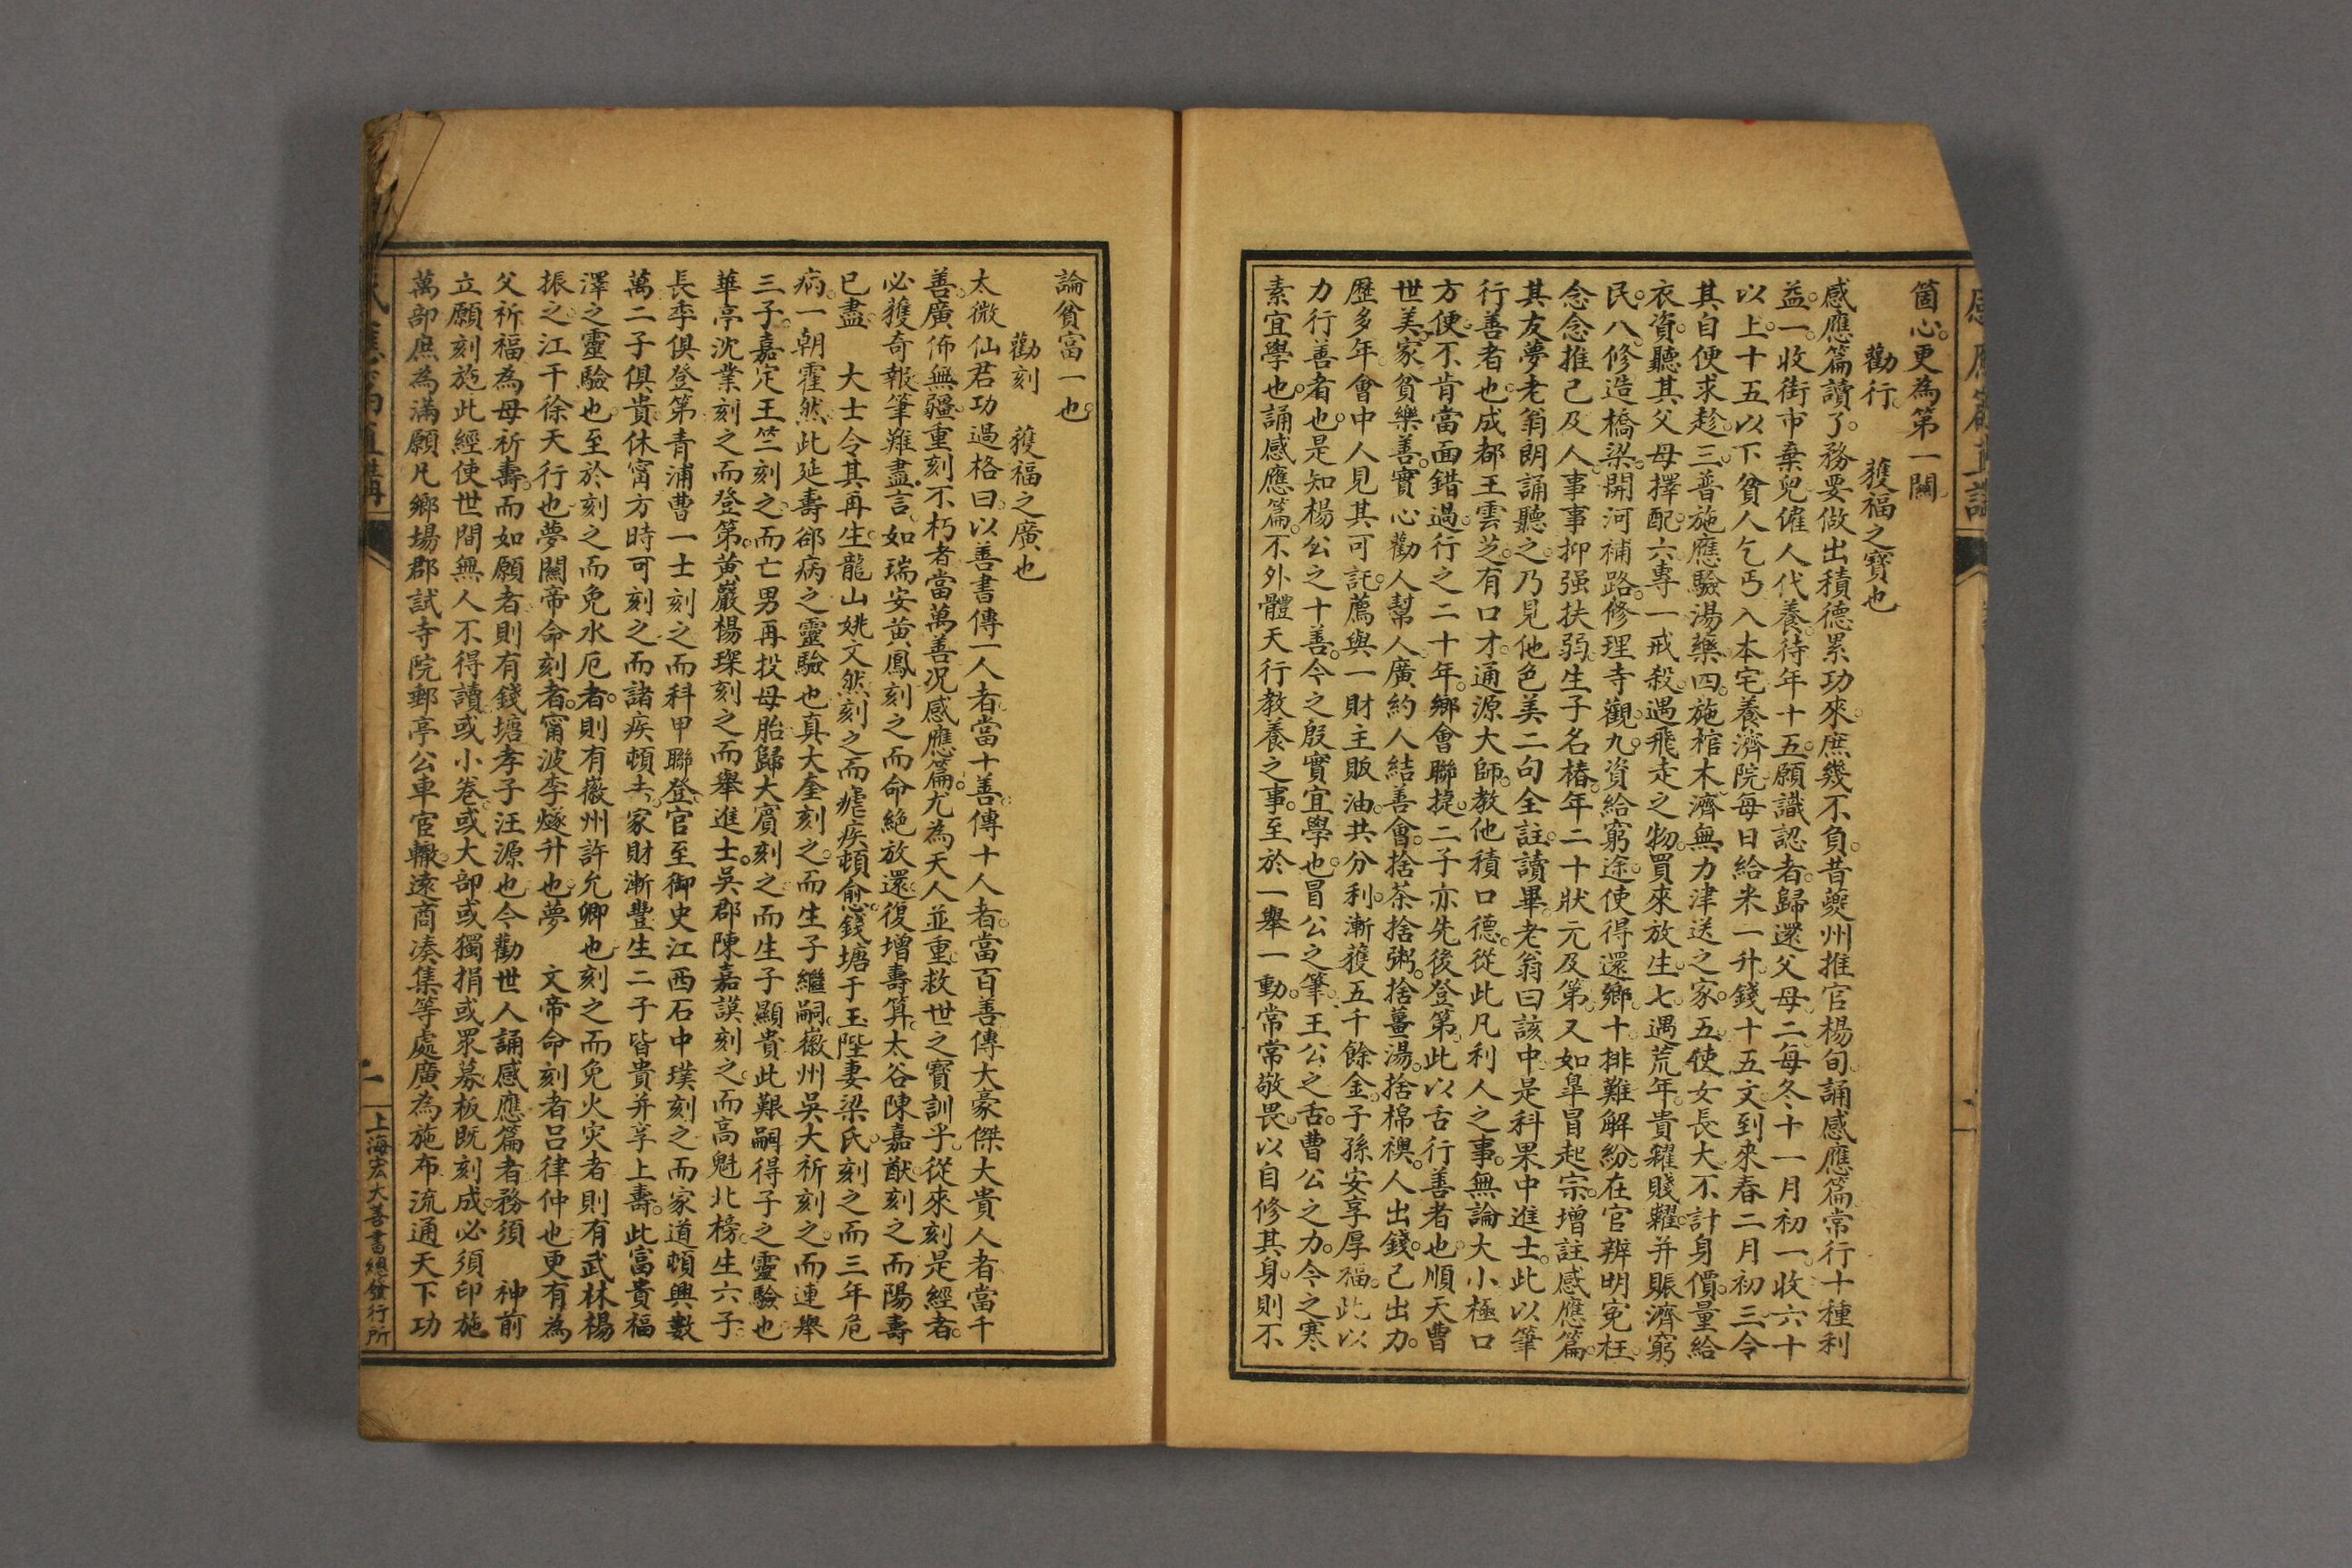 箇心。更為第一關。
勸行　獲福之寶也
感應篇讀了。務要做出積德累功來。庶幾不負。昔夔州推官楊旬。誦感應篇。常行十種利
益。一。收街市棄兒。僱人代養。待年十五。願識認者。歸還父母。二。每冬十一月初一。收六十
以上。十五以下貧人乞丐。入本宅養濟院。每日給米一升。錢十五文。到來春二月初三。令
其自便求趁。三。普施應驗湯藥。四。施棺木。濟無力津送之家。五。使女長大。不計身價。量給
衣資。聽其父母擇配。六。專一戒殺。遇飛走之物。買來放生。七。遇荒年。貴糴賤糶。并賑濟窮
民。八。修造橋梁。開河補路。修理寺觀。九。資給窮途。使得還鄉。十。排難解紛。在官辨明寃枉。
念念推己及人。事事抑强扶弱。生子名椿。年二十狀元及第。又如臯冒起宗。增註感應篇。
其友夢老翁朗誦聽之。乃見他色美二句全註。讀畢。老翁曰。該中。是科果中進士。此以筆
行善者也。成都王雲芝。有口才。通源大師。教他積口德。從此凡利人之事。無論大小。極口
方便。不肯當面錯過。行之二十年。鄉會聯捷。二子亦先後登第。此以舌行善者也。順天曹
世美。家貧樂善。實心勸人幫人。廣約人結善會。捨茶捨粥。捨薑湯。捨棉襖。人出錢。己出力。
歷多年。會中人見其可託。薦與一財主販油。共分利。漸獲五千餘金。子孫安享厚福。此以
力行善者也。是知楊公之十善。今之殷實宜學也。冒公之筆。王公之舌。曹公之力。今之寒
素宜學也。誦感應篇。不外體天行教養之事。至於一舉一動。常常敬畏。以自修其身。則不
論貧富一也。
勸刻　獲福之廣也
太微仙君功過格曰。以善書傳一人者。當十善。傳十人者。當百善。傳大豪傑大貴人者。當千
善。廣佈無疆。重刻不朽者。當萬善。况感應篇。尤為天人並重。救世之寶訓乎。從來刻是經者。
必獲奇報。筆難盡言。如瑞安黄鳳刻之。而命絕放還。復增壽算。太谷陳嘉猷刻之。而陽壽
已盡。　大士令其再生。龍山姚文然刻之。而瘧疾頓愈。錢塘于玉陛妻梁氏刻之。而三年危
病。一朝霍然。此延壽郤病之靈驗也。真大奎刻之。而生子繼嗣。徽州吳大祈刻之。而連舉
三子。嘉定王竺刻之。而亡男再投母胎。歸大賓刻之。而生子顯貴。此艱嗣得子之靈驗也。
華亭沈業刻之。而登第。黄巖楊琛刻之。而舉進士。吳郡陳嘉謨刻之。而高魁北榜。生六子。
長季俱登第。青浦曹一士刻之。而科甲聯登。官至御史。江西石中璞刻之。而家道頓興。數
萬。二子俱貴。休甯方時可刻之。而諸疾頓去。家財漸豐。生二子皆貴。并享上壽。此富貴福
澤之靈驗也。至於刻之而免水厄者。則有徽州許允卿也。刻之而免火災者。則有武林楊
振之。江干徐天行也。夢關帝命刻者。甯波李燧升也。夢　文帝命刻者。呂律仲也。更有為
父祈福。為母祈壽。而如願者。則有錢塘孝子汪源也。今勸世人誦感應篇者。務須　神前
立願刻施此經。使世間無人不得讀。或小卷。或大部。或獨捐。或眾募。板既刻成。必須印施
萬部。庶為滿願。凡鄉場郡試。寺院郵亭。公車官轍。遠商凑集等處。廣為施布。流通天下。功
上海宏大善書總發行所